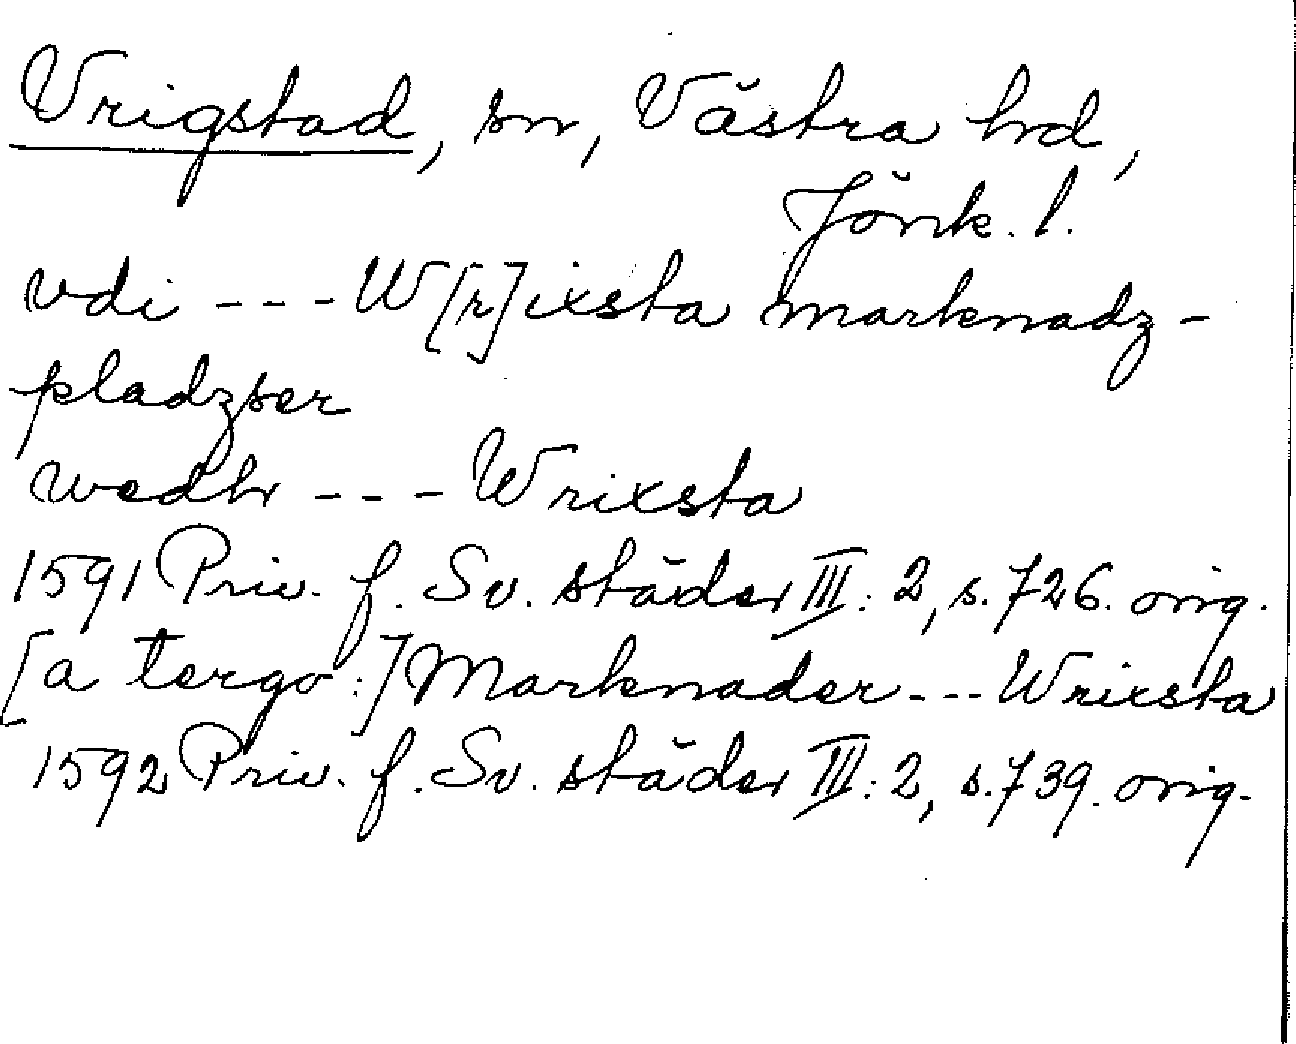 Vrigstad, sn, Västra hd,
Jönk. l.
vdi --- W[r]ixsta marknadz-
pladzser
wedhr --- Wrixsta
1591 Priv. f. Sv. städer III: 2, s. 726. orig.
[a tergo:] Marknader --- Wrixsta
1592 Priv. f. Sv. städer III: 2, s. 739. orig.